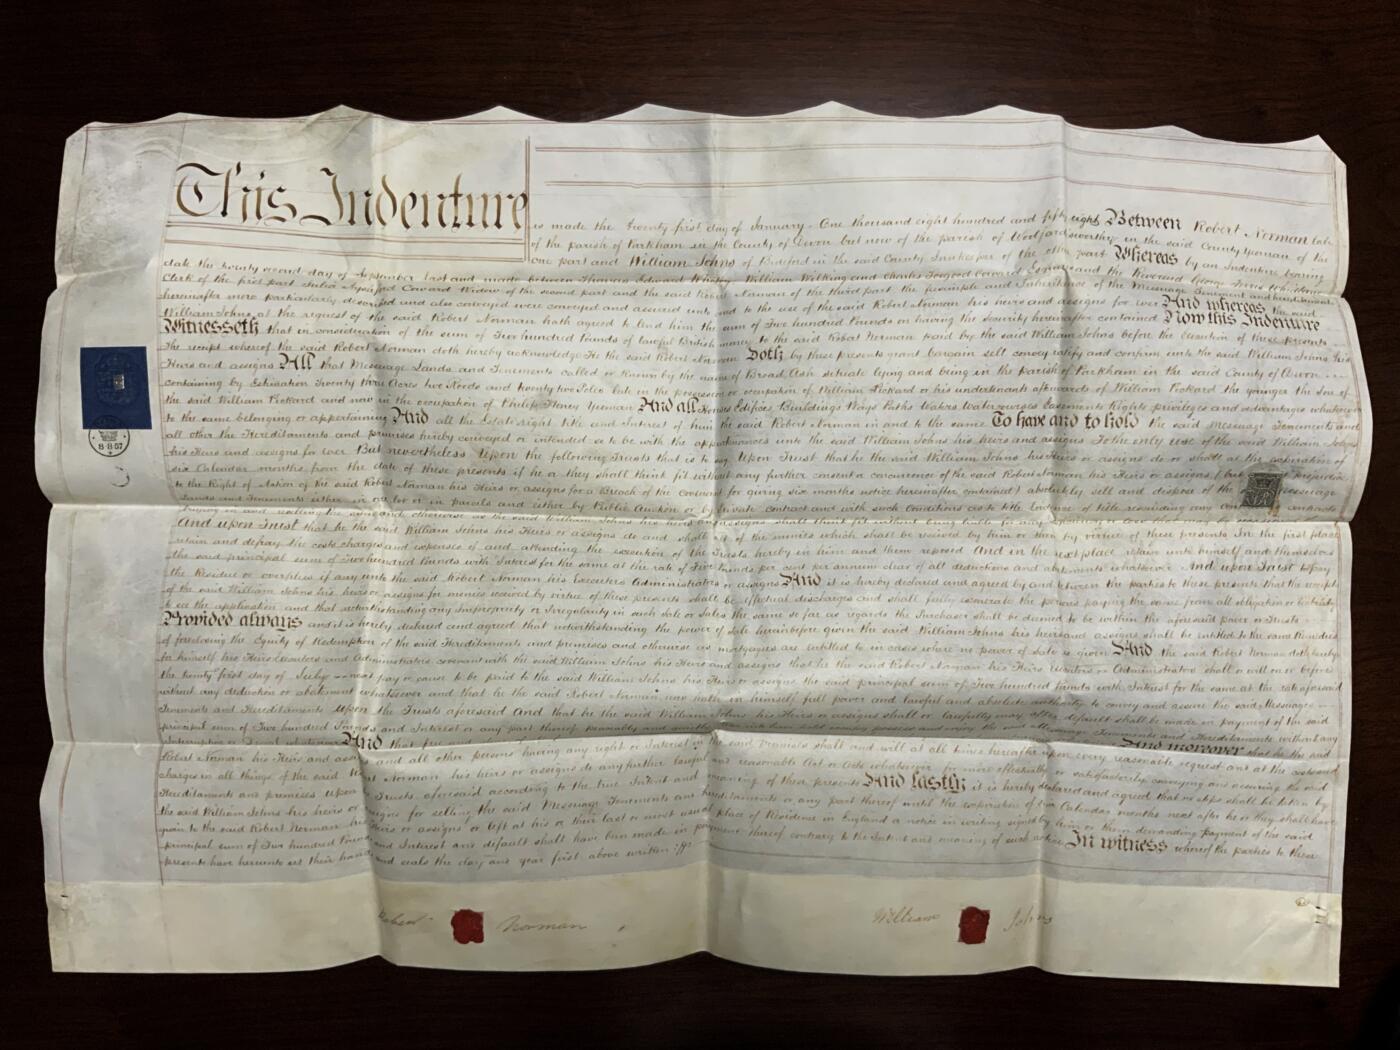 This Indenture
is made the twenty first day of January One thousand eight hundred and fifty eight Between Robert Norman late
of the parish of Parkham in the County of Devon but now of the parish of Woolfardisworthy in the said County Yeoman of the
one part and William Johns of Bideford in the said County Innkeeper of the other part Whereas by an Indenture bearing
date the twenty second day of September last and made between Thomas Edward William Wilking and Charles Coward Esquires and the Reverend George
Clerk of the first part Julia Coward Widow of the second part and the said Robert Norman of the third part the feesimple and Inheritance of the Messuage Tenement and hereditaments
hereinafter more particularly described and also conveyed were conveyed and assured unto and to the use of the said Robert Norman his heirs and assigns for ever And whereas the said
William Johns at the request of the said Robert Norman hath agreed to lend him the sum of Two hundred Pounds on having the security hereinafter contained Now this Indenture
Witnesseth that in consideration of the sum of Two hundred Pounds of lawful British money to the said Robert Norman paid by the said William Johns before the execution of these presents
The receipt whereof the said Robert Norman doth hereby acknowledge He the said Robert Norman Doth by these presents grant bargain sell convey ratify and confirm unto the said William Johns his
Heirs and assigns All that Messuage Lands and Tenements called or known by the name of Broad Ash situate lying and being in the parish of Parkham in the said County of Devon
containing by Estimation Twenty three Acres two Roods and twenty two Poles late in the possession or occupation of William Pickard or his undertenants afterwards of William Pickard the younger the Son of
the said William Pickard and now in the occupation of Philip Honey Yeoman And all Houses Edifices Buildings Ways Paths Waters Watercourses Easements Rights privileges and advantages whatsoever
to the same belonging or appertaining And all the Estate right title and Interest of him the said Robert Norman in and to the same To have and to hold the said Messuage Tenements and
all other the Hereditaments and premises hereby conveyed or intended so to be with the appurtenances unto the said William Johns his heirs and assigns To the only use of the said William Johns
his Heirs and assigns for ever But nevertheless Upon the following Trusts that is to say Upon Trust that he the said William Johns his Heirs or assigns do or shall at the expiration of
six Calendar months from the date of these presents if he or they shall think fit without any further consent or concurrence of the said Robert Norman his Heirs or assigns (but without prejudice
to the Right of Action of the said Robert Norman his Heirs or assigns for a Breach of the Covenant for giving six months notice hereinafter contained) absolutely sell and dispose of the Messuage
Lands and Tenements either in one lot or in parcels and either by Public Auction or by private contract and with such Conditions as to title evidence of title rescinding any contracts
And upon Trust that he the said William Johns his Heirs or assigns do and shall out of the monies which shall be received by him or them by virtue of these presents In the first place
retain and defray the costs charges and expenses of and attending the execution of the Trusts hereby in him and them reposed And in the next place retain unto himself and themselves
the said principal sum of Two hundred Pounds with Interest for the same at the rate of Five Pounds per cent per annum clear of all deductions and abatements whatsoever And upon Trust to pay
the Residue or overplus if any unto the said Robert Norman his Executors Administrators or assigns And it is hereby declared and agreed by and between the parties to these presents that the receipts
of the said William Johns his heirs or assigns for monies received by virtue of these presents shall be effectual discharges and shall fully exonerate the persons paying the same from all obligation or liability
to see the application and that notwithstanding any Impropriety or Irregularity in such Sale or Sales the same so far as regards the Purchaser shall be deemed to be within the aforesaid power or Trusts
Provided always and it is hereby declared and agreed that notwithstanding the power of Sale hereinbefore given the said William Johns his heirs and assigns shall be entitled to the same Remedies
of foreclosing the Equity of Redemption of the said Hereditaments and premises and otherwise as mortgagees are entitled to in cases where no power of sale is given And the said Robert Norman doth hereby
for himself his Heirs Executors and Administrators covenant with the said William Johns his Heirs and assigns that he the said Robert Norman his Heirs Executors or Administrators shall or will on or before
the twenty first day of July next pay or cause to be paid to the said William Johns his Heirs or assigns the said principal sum of Two hundred Pounds with Interest for the same at the rate aforesaid
without any deduction or abatement whatsoever and that he the said Robert Norman now hath in himself full power and lawful and absolute authority to convey and assure the said Messuage
Tenements and Hereditaments Upon the Trusts aforesaid And that he the said William Johns his Heirs or assigns shall or lawfully may after default shall be made in payment of the said
principal sum of Two hundred Pounds and Interest or any part thereof peaceably and possess and enjoy the said Messuage Tenements and Hereditaments without any
Interruption or Denial whatsoever And that free And moreover that he the said
Robert Norman his Heirs and assigns and all other persons having any right or Interest in the said premises shall and will at all times hereafter upon every reasonable request and at the costs and
charges in all things of the said Robert Norman his heirs or assigns do any further lawful and reasonable Act or Acts whatsoever for more effectually or satisfactorily conveying and assuring the said
Hereditaments and premises upon Trusts aforesaid according to the true Intent and meaning of these presents And lastly it is hereby declared and agreed that no steps shall be taken by
the said William Johns his heirs or assigns for selling the said Messuage Tenements and hereditaments or any part thereof until the expiration of six Calendar months next after he or they shall have
given to the said Robert Norman his Heirs or assigns or left at his or their last or most usual place of Residence in England a notice in writing signed by him or them demanding payment of the said
principal sum of Two hundred Pounds and Interest and default shall have been made in payment thereof contrary to the Intent and meaning of such notice In witness whereof the parties to these
presents have hereunto set their hands and seals the day and year first above written
8·8·57
VR
Robert Norman
William Johns